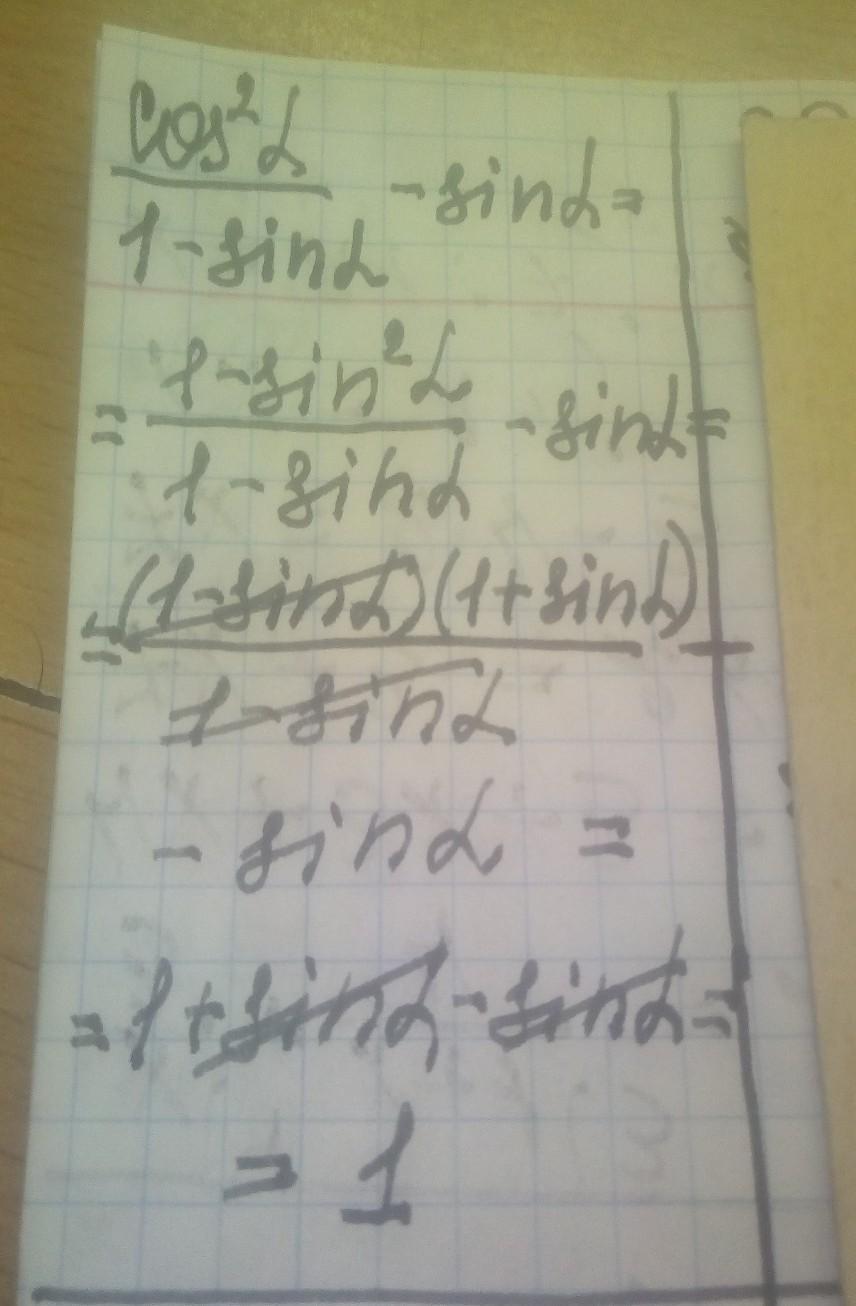 cos²α
――― - sinα =
1 - sinα
= 1 - sin²α
――― - sinα =
1 - sinα
= (1 - sinα)(1 + sinα)
――― -
1 - sinα
- sinα =
= 1 + sinα - sinα =
= 1